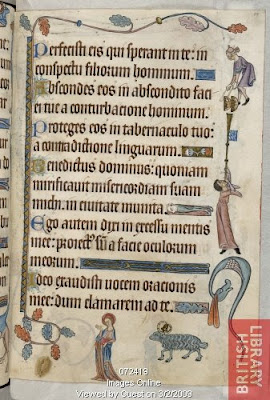 Perfecisti eis qui sperant in te: in
conspectu filiorum hominum.
Abscondes eos in abscondito fa
ciei tue a conturbacione hominum.
Proteges eos in tabernaculo tuo:
a contradictione linguarum.
Benedictus dominus: quoniam
mirificauit misericordiam suam
mich. in ciuitate munita.
Ego autem dixi in excessu mentis
mee: proiect' sū a facie oculorum
meorum.
Ideo exaudisti uocem orationis
mee: dum clamarem ad te.
BRITISH
LIBRARY
072419
Images Online
Viewed by Guest on 3/2/2009